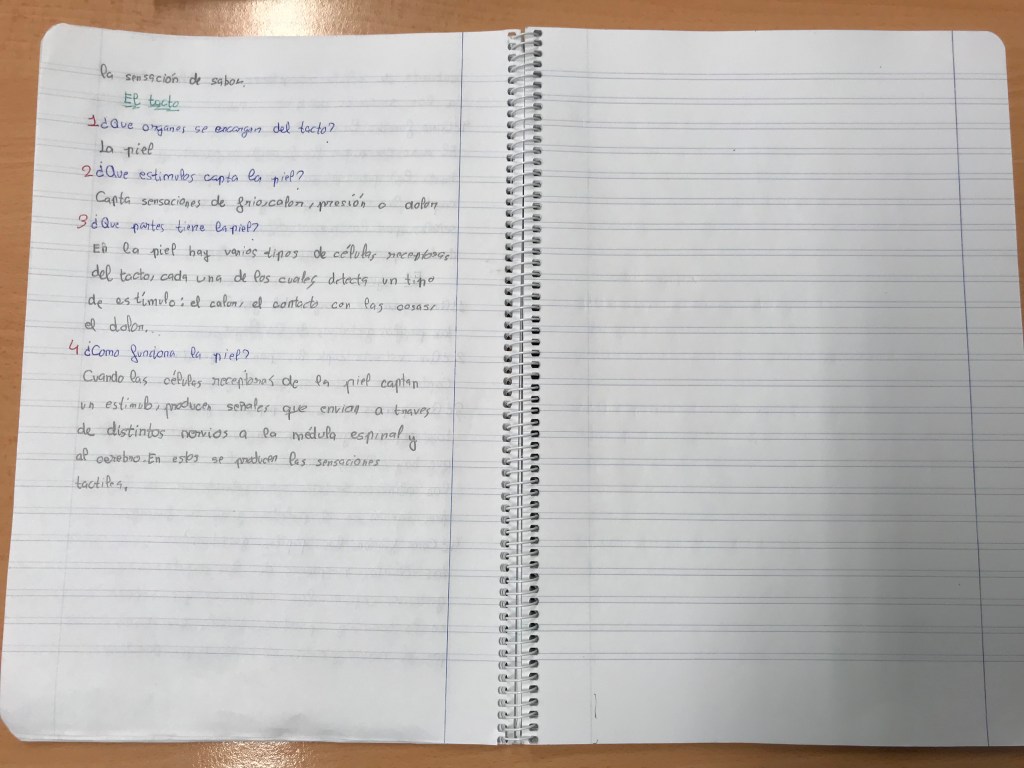 la sensación de sabor.
El tacto
1 ¿Que organos se encargan del tacto?
La piel
2 ¿Que estimulos capta la piel?
Capta sensaciones de frio, calor, presión o dolor
3 ¿Que partes tiene la piel?
En la piel hay varios tipos de células receptoras
del tacto, cada una de los cuales detecta un tipo
de estímulo: el calor, el contacto con las cosas,
el dolor...
4 ¿Como funciona la piel?
Cuando las células receptoras de la piel captan
un estimulo, producen señales que envian a traves
de distintos nervios a la médula espinal y
al cerebro. En estos se producen las sensaciones
tactiles.